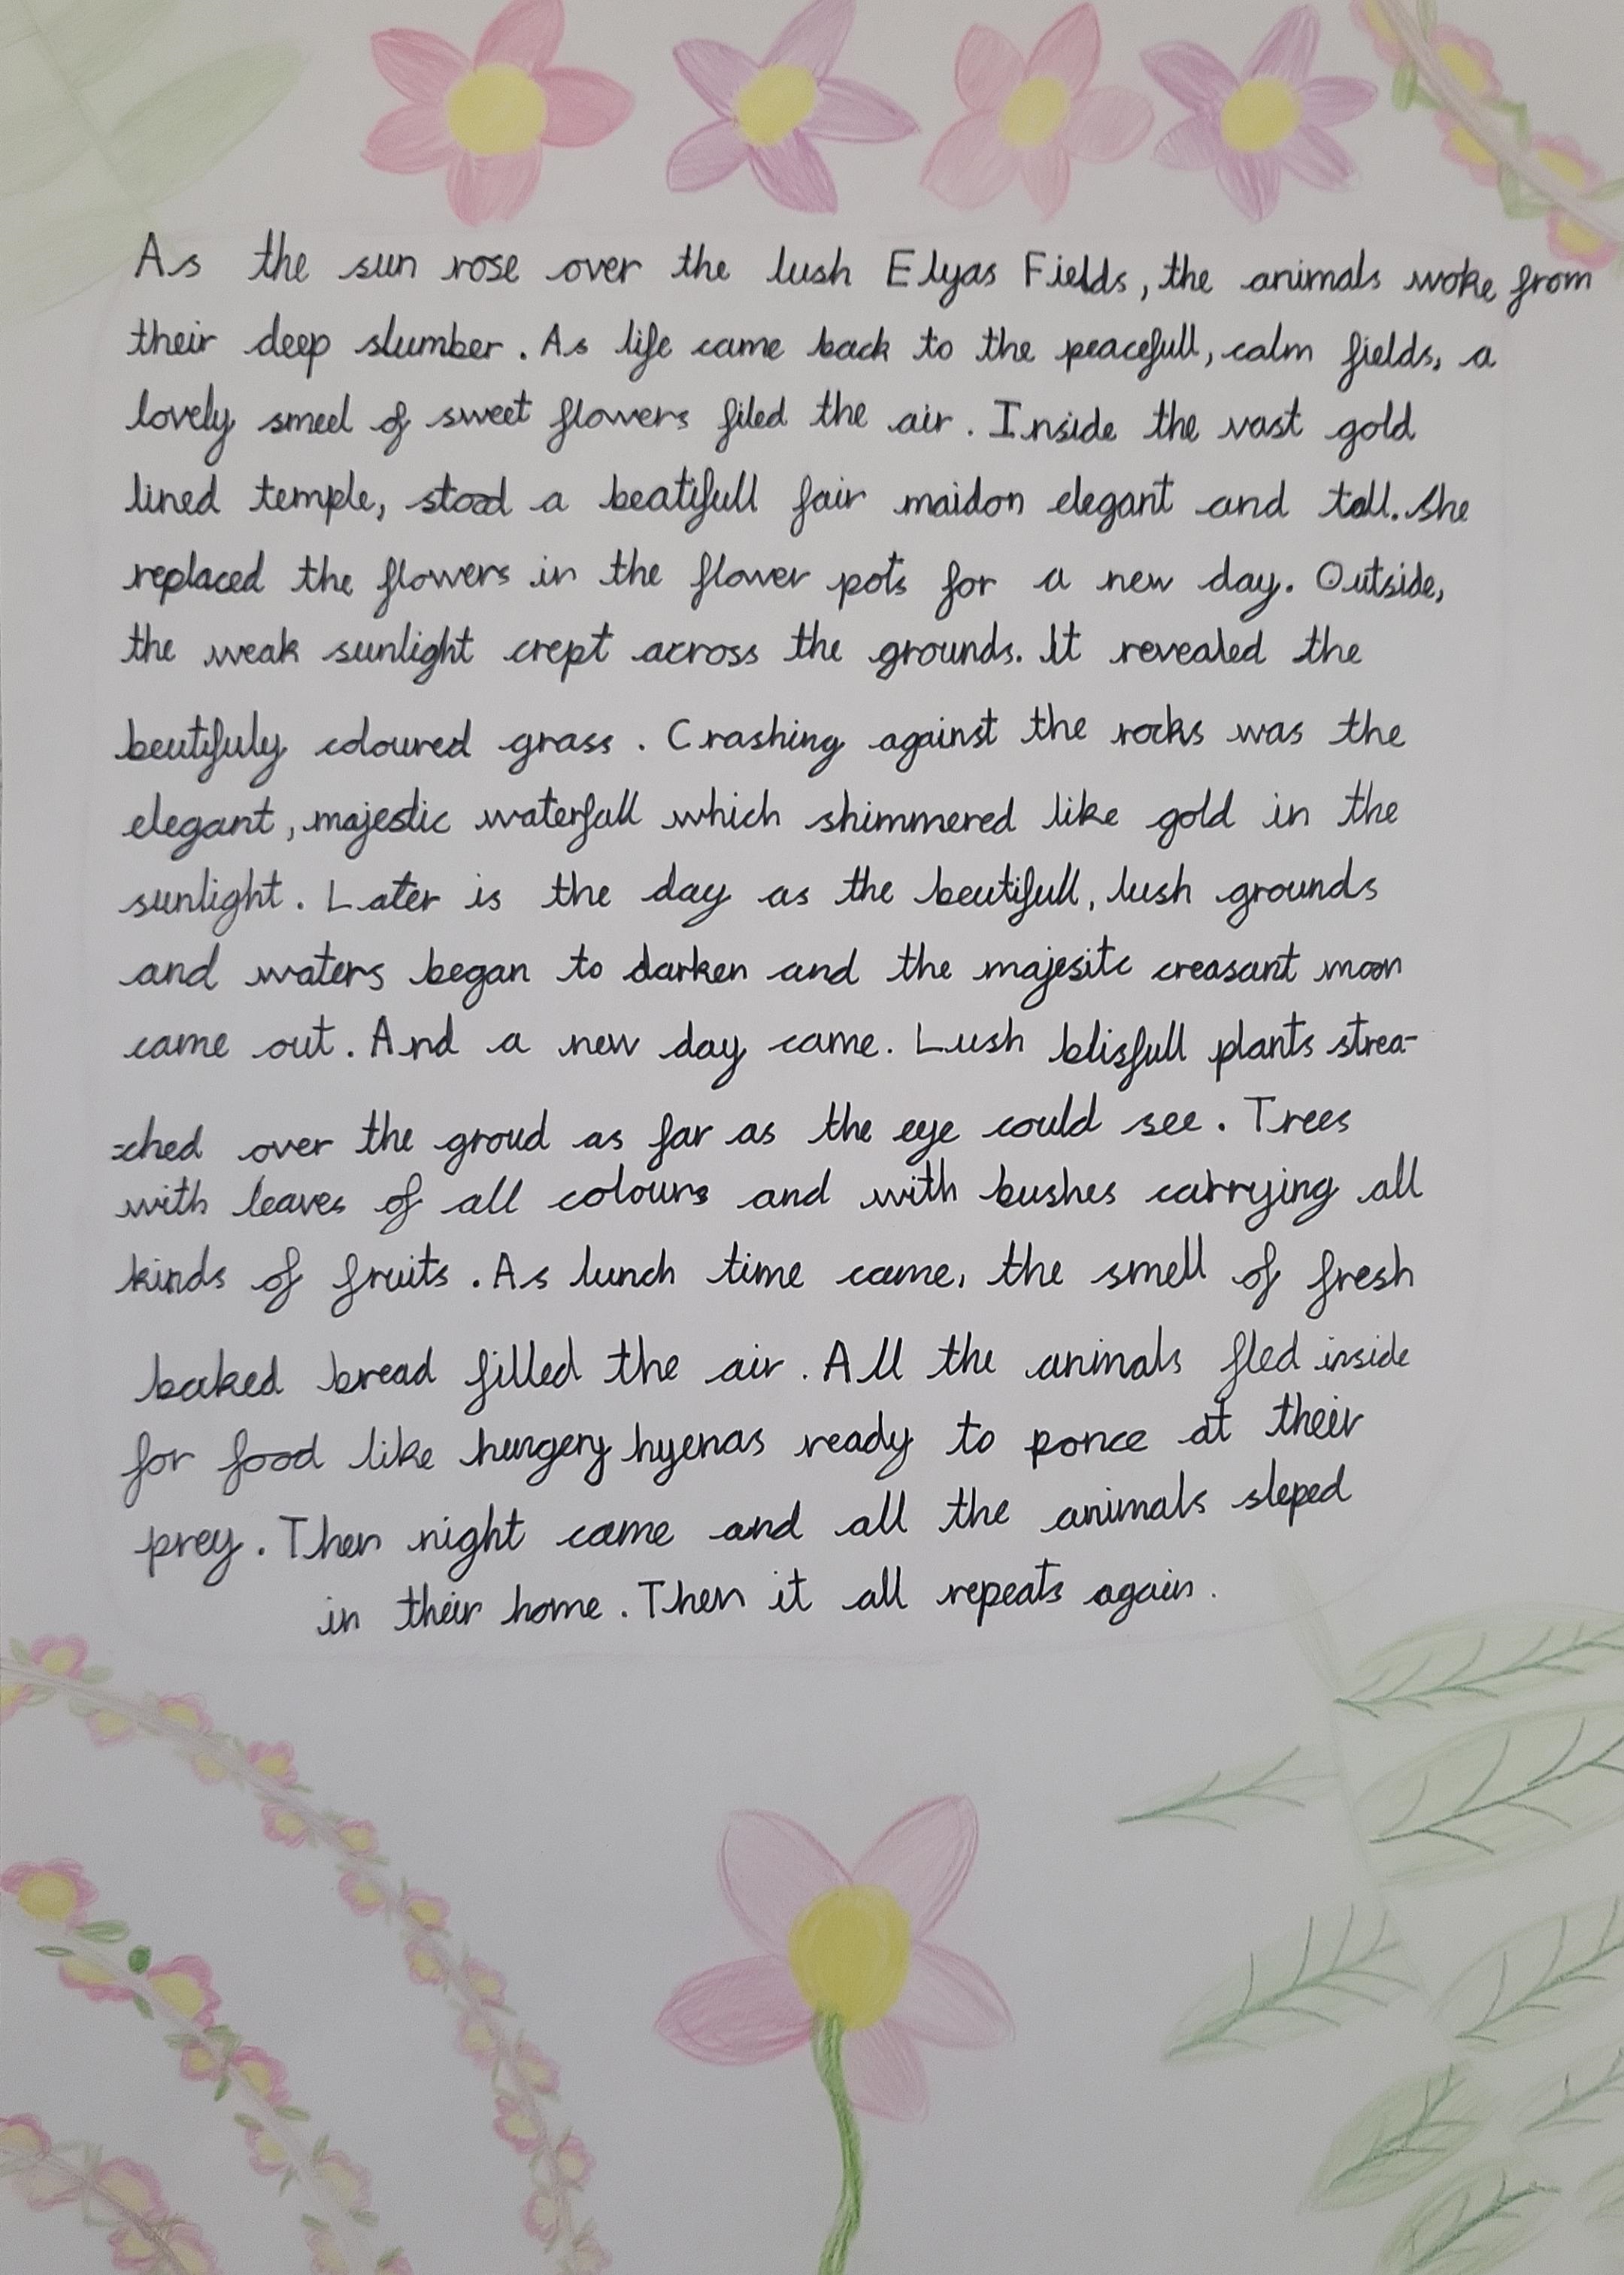 As the sun rose over the lush Elyas Fields, the animals woke from
their deep slumber. As life came back to the peacefull, calm fields, a
lovely smeel of sweet flowers filed the air. Inside the vast gold
lined temple, stood a beatifull fair maidon elegant and tall. She
replaced the flowers in the flower pots for a new day. Outside,
the weak sunlight crept across the grounds. It revealed the
beutifuly coloured grass. Crashing against the rocks was the
elegant, majestic waterfall which shimmered like gold in the
sunlight. Later is the day as the beutifull, lush grounds
and waters began to darken and the majesitc creasant moon
came out. And a new day came. Lush blisfull plants strea-
-ched over the groud as far as the eye could see. Trees
with leaves of all colours and with bushes carrying all
kinds of fruits. As lunch time came, the smell of fresh
baked bread filled the air. All the animals fled inside
for food like hungery hyenas ready to ponce at their
prey. Then night came and all the animals sleped
in their home. Then it all repeats again.